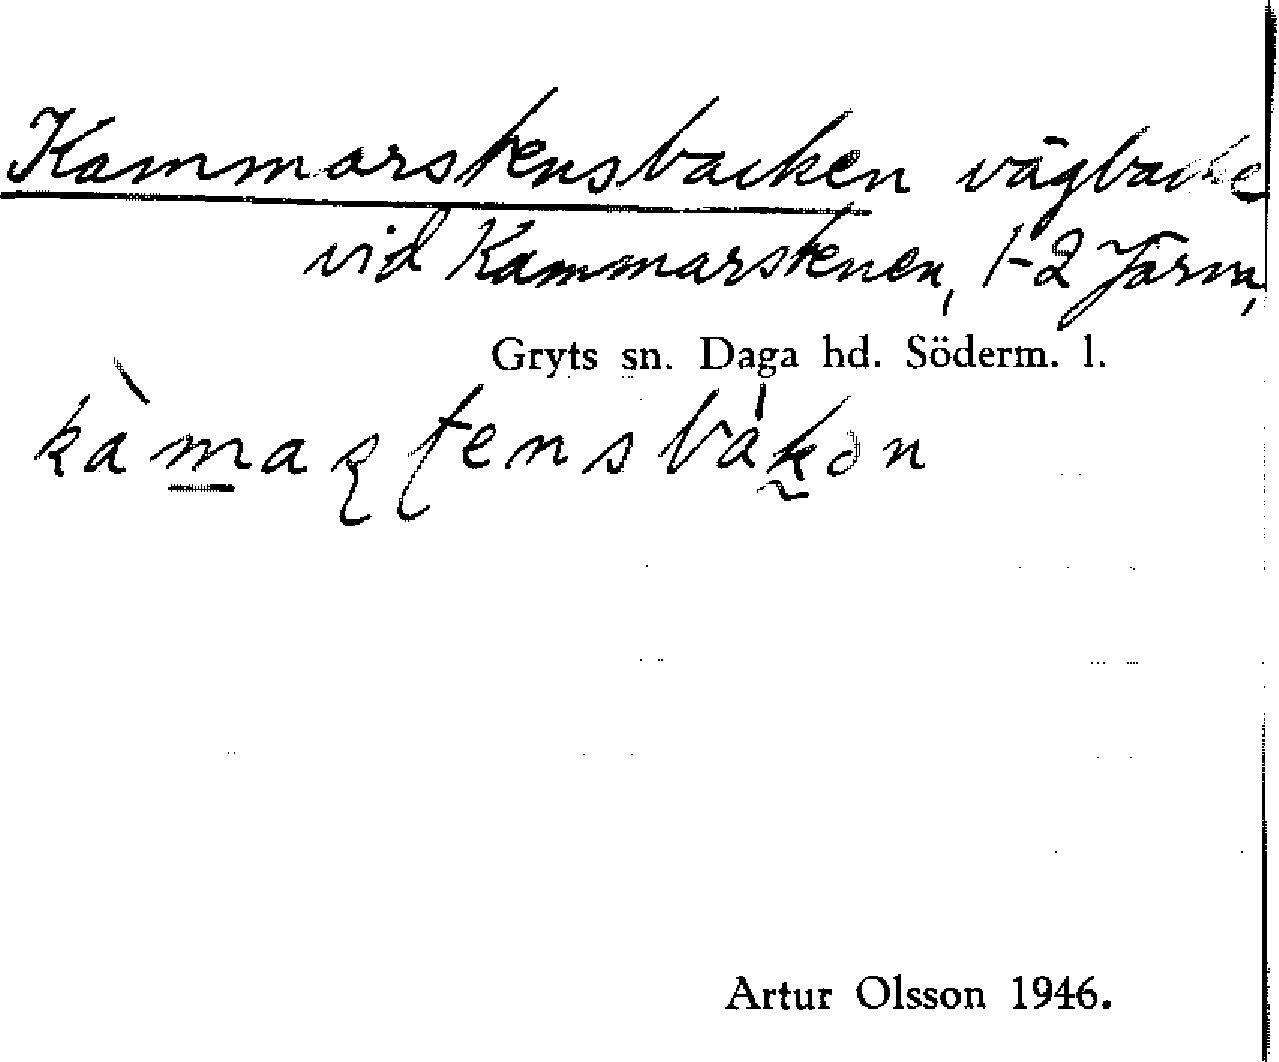 Kammarstensbacken vägbacke
vid Kammarstenen, 1-2 Järna,
Gryts sn. Daga hd. Söderm. l.
kàmaʂʈensbákən
Artur Olsson 1946.